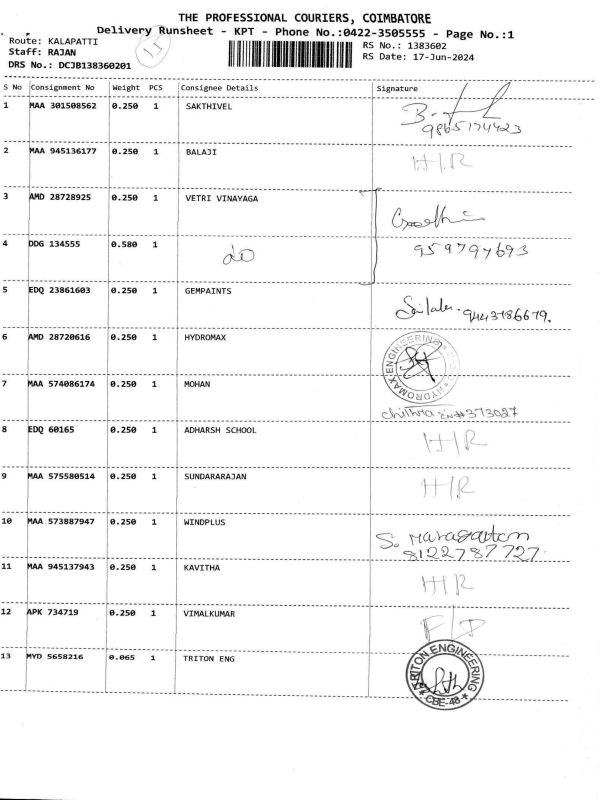 THE PROFESSIONAL COURIERS, COIMBATORE
Delivery Runsheet - KPT - Phone No.:0422-3505555 - Page No.:1
Route: KALAPATTI
Staff: RAJAN
DRS No.: DCJB138360201
11
RS No.: 1383602
RS Date: 17-Jun-2024
S No Consignment No Weight PCS Consignee Details Signature
1 MAA 301508562 0.250 1 SAKTHIVEL
9865174423
2 MAA 945136177 0.250 1 BALAJI H/R
3 AMD 28728925 0.250 1 VETRI VINAYAGA
4 DDG 134555 0.580 1 do 9597797693
5 EDQ 23861603 0.250 1 GEMPAINTS 9443786679.
6 AMD 28720616 0.250 1 HYDROMAX HYDROMAX ENGINEERING
7 MAA 574086174 0.250 1 MOHAN chithra 373027
8 EDQ 60165 0.250 1 ADHARSH SCHOOL H/R
9 MAA 575580514 0.250 1 SUNDARARAJAN H/R
10 MAA 573887947 0.250 1 WINDPLUS S.
8122787727.
11 MAA 945137943 0.250 1 KAVITHA H/R
12 APK 734719 0.250 1 VIMALKUMAR
13 MYD 5658216 0.065 1 TRITON ENG TRITON ENGINEERING
* CBE-48 *